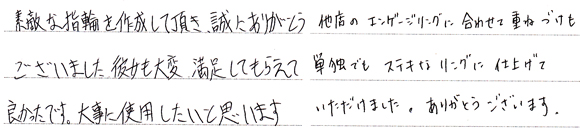 素敵な指輪を作成して頂き、誠にありがとう
ございました 彼女も大変 満足してもらえて
良かったです。大事に使用したいと思います
他店の エンゲージリングに 合わせて重ねづけも
単独でも ステキな リングに 仕上げて
いただけました。ありがとうございます.